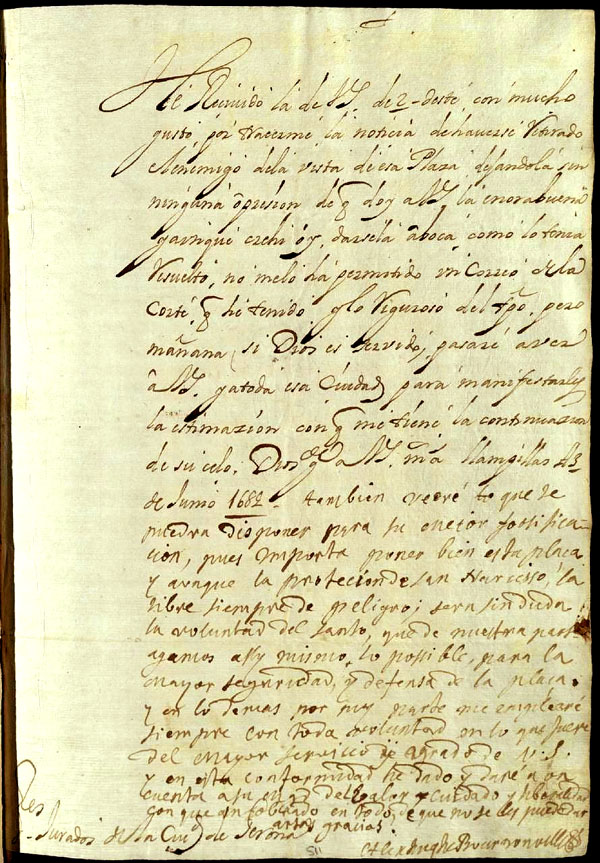 He Recivido la de V.S. de 2 deste con mucho
gusto por traerme la noticia de haverse retirado
el enemigo de la vista de esa Plaza dejandola sin
ninguna opresion de q doy a V.S. la enorabuena
y aunque crehi oy darsela a boca como lo tenia
resuelto, no me lo ha permitido un Correo de la
Corte q he tenido y lo riguroso del tpo, pero
mañana, si Dios es servido, pasaré a ver
a V.S. y a toda esa Ciudad para manifestarles
la estimazion con q me tiene la continuazion
de su celo, Dios ge a V.S. ms as
de Junio 168 tambien veré lo que se
puedra disponer para su mejor fortifica-
cion, pues importa poner bien esta plaça
y aunque la protecion de san Narcisso, la
libre siempre de peligro; sera sin duda
la voluntad del santo, que de nuestra parte
agamos assy mismo, lo possible, para la
mayor seguridad, y defensa de la plaça.
y en lo demas por my parte me emplearé
siempre con toda voluntad en lo que fuere
del mayor servicio y agrado de V.S.
y en esta conformidad he dado y daré a
cuenta a su del valor y cuidado y
con que an obrado en todo, de que no se les puede dar
artas gracias.
Jurados de la Ciud de Gerona
Bournonville